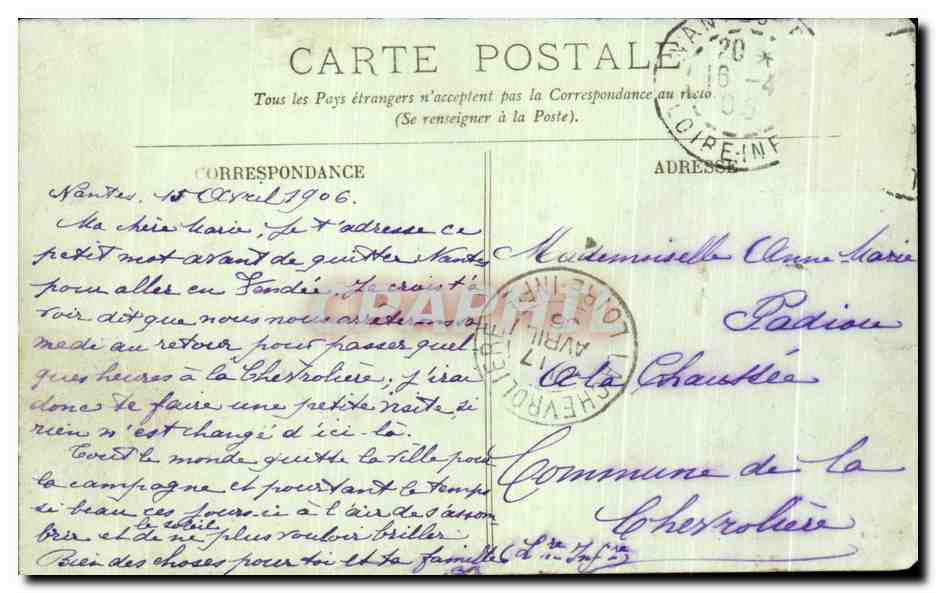 CARTE POSTALE
Tous les Pays étrangers n'acceptent pas la Correspondance au recto
(Se renseigner à la Poste).
CORRESPONDANCE
Nantes, 15 Avril 1906.
Ma chère Marie, Je t'adresse ce
petit mot avant de quitter Nantes
pour aller en Vendée. Je crois t'a
voir dit que nous nous arrêterons sa
medi au retour pour passer quel
ques heures à la Chevrolière; j'irai
donc te faire une petite visite si
rien n'est changé d'ici-là.
Tout le monde quitte la ville pour
la campagne et pourtant le temps
si beau ces jours-ci à l'air de s'assom
brir et le soleil de ne plus vouloir briller
Bien des choses pour toi et ta famille
ADRESSE
Mademoiselle Anne-Marie
Padiou
A la Chaussée
Commune de la
Chevrolière
(Lre Infre)
20 *
16 - 4
LOIRE-INF
LA CHEVROLIERE
17
AVRIL
06
LOIRE-INFRE